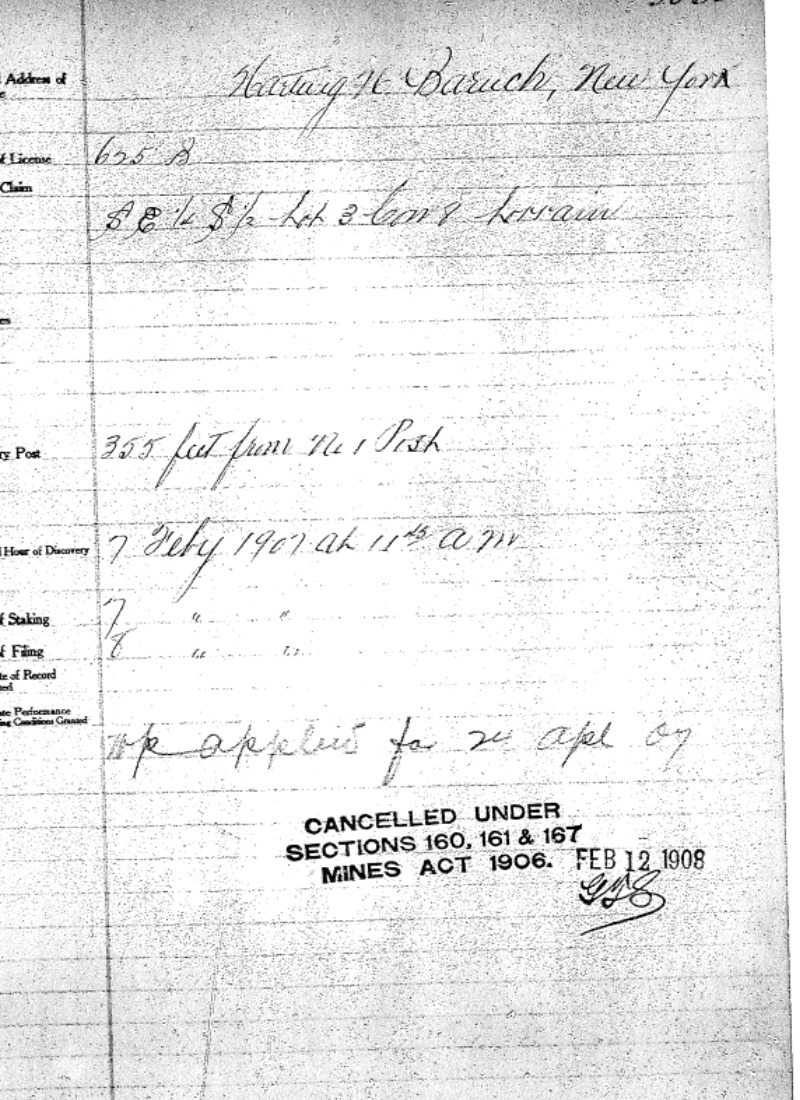 Address of
Hartwig N. Baruch, New York
f License 625 B
Claim
S E 1/4 S 1/2 Lot 3 Con 8 Lorrain
es
ry Post 355 feet from No 1 Post
Hour of Discovery 7 Feby 1907 at 11 a m
f Staking 7 " "
f Filing 8 " "
te of Record
ed
ate Performance
ing Conditions Granted
wp applied for 2nd Apl 07
CANCELLED UNDER
SECTIONS 160, 161 & 167
MINES ACT 1906. FEB 12 1908